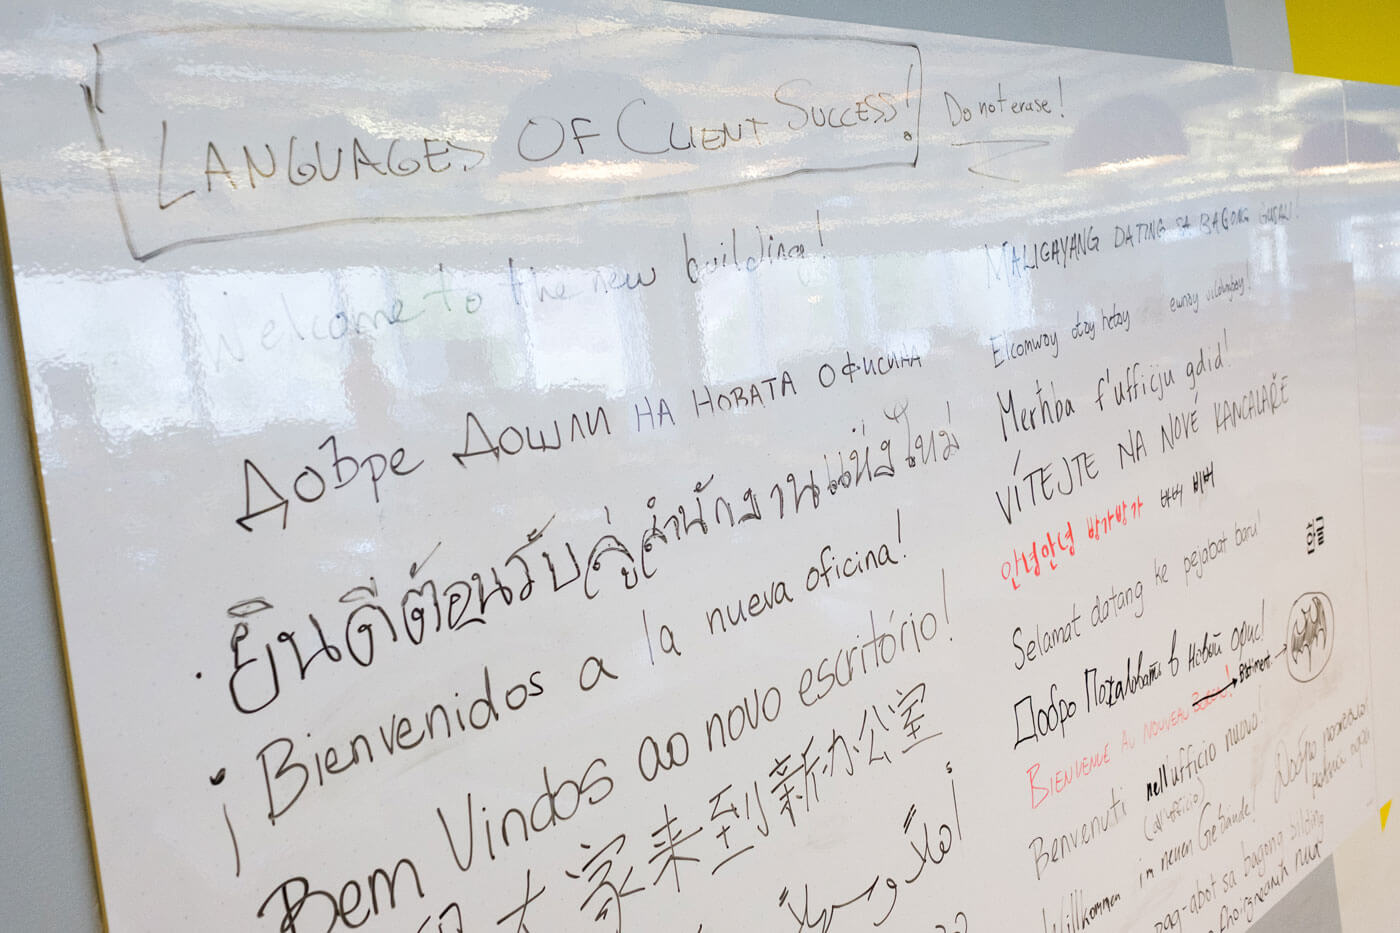 LANGUAGES OF CLIENT SUCCESS!
Do not erase!
Welcome to the new building!
Добре Дошли НА НОВАТА ОФИСИНА
ยินดีต้อนรับสู่สำนักงานแห่งใหม่
¡Bienvenidos a la nueva oficina!
Bem Vindos ao novo escritório!
大家来到新办公室
أهلا وسهلا
MALIGAYANG DATING SA BAGONG
Elcomway otay hetay ewnay uildingbay!
Merħba f'ufficju gdid!
VÍTEJTE NA NOVÉ KANCALAŘE
안녕안녕 방가방가 바버 비버
한글
Selamat datang ke pejabat baru!
Добро Пожаловать в новый офис!
BIENVENUE AU NOUVEAU Bâtiment.
Benvenuti nell'ufficio nuovo!
(all'ufficio)
Willkommen im neuen Gebäude!
pag-abot sa bagong bilding